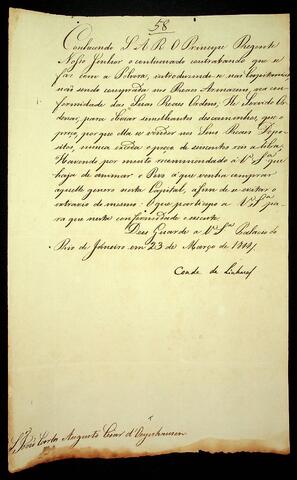 58
Conhecendo S A R O Principe Regente
Nosso Senhor o continuado contrabando que se
faz com a Polvora, introduzindo-se nas Capitanias
não sendo comprada nos Reaes Armazens, na con-
formidade das Suas Reaes Ordens; He Servido Or-
denar, para obviar similhantes descaminhos, que o
preço, por que ella se vender nos Seus Reaes Depo-
sitos, nunca exceda o preço de seiscentos reis a libra,
Havendo por muito recommendado a V.ª S.ª que
haja de animar o Povo á que venha comprar
aquelle genero nesta Capital, afim de se evitar o
extravio do mesmo: O que participo a V.ª S.ª pa-
ra que nesta conformidade o execute.
Deos Guarde a V.ª S.ª Palacio do
Rio de Janeiro em 23 de Março de
Conde de Linhares
S.r João Carlos Augusto d'Oeynhausen